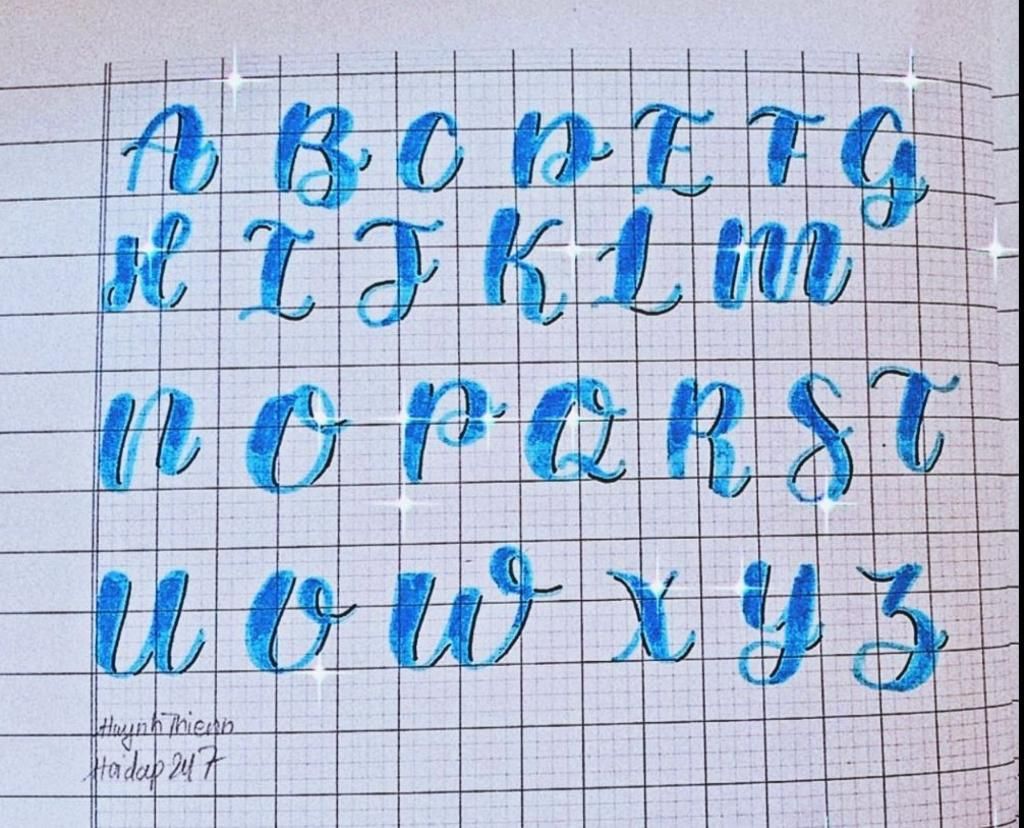 A B C D E F G
H I J K L M
N O P Q R S T
U V W X Y Z
Huynh Thienn
Hoidap 247